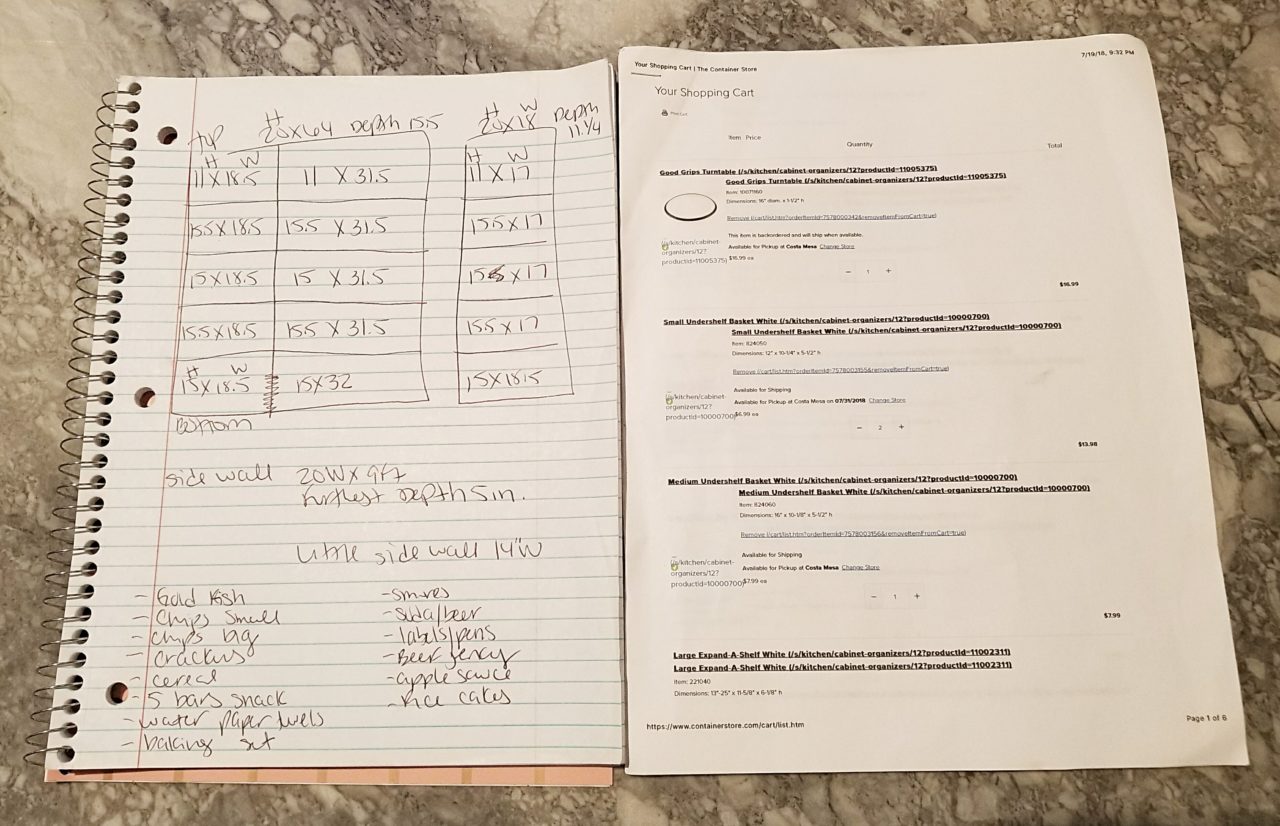 H W
20x64 Depth 15.5
H W
20x18 Depth
11.1/4
TOP
H W
11 X 18.5
11 X 31.5
H W
11 X 17
15.5 X 18.5
15.5 X 31.5
15.5 X 17
15 X 18.5
15 X 31.5
15 X 17
15.5 X 18.5
15.5 X 31.5
15.5 X 17
H W
15 X 18.5
15 X 32
15 X 18.5
Bottom
side wall 20W X 9ft
furthest Depth 5 in.
little side wall 14"W
- Gold Fish
- Chips small
- chips big
- crackers
- cereal
- 5 bars snack
- water paper towels
- baking
- smores
- soda/beer
- labels/pens
- Beef jerky
- apple sauce
- Rice cakes
Your Shopping Cart | The Container Store
7/19/18, 9:32 PM
Your Shopping Cart
Print Cart
Item Price
Quantity
Total
Good Grips Turntable (/s/kitchen/cabinet-organizers/12?productId=11005375)
Good Grips Turntable (/s/kitchen/cabinet-organizers/12?productId=11005375)
Item: 10071160
Dimensions: 16" diam. x 1-1/2" h
Remove (/cart/list.htm?orderItemId=7578000342&removeItemFromCart=true)
This item is backordered and will ship when available.
(/s/kitchen/cabinet-
organizers/12?
productId=11005375)
Available for Pickup at Costa Mesa Change Store
$16.99 ea
− 1 +
$16.99
Small Undershelf Basket White (/s/kitchen/cabinet-organizers/12?productId=10000700)
Small Undershelf Basket White (/s/kitchen/cabinet-organizers/12?productId=10000700)
Item: 824050
Dimensions: 12" x 10-1/4" x 5-1/2" h
Remove (/cart/list.htm?orderItemId=7578003155&removeItemFromCart=true)
Available for Shipping
(/s/kitchen/cabinet-
organizers/12?
productId=10000700)
Available for Pickup at Costa Mesa on 07/31/2018 Change Store
$6.99 ea
− 2 +
$13.98
Medium Undershelf Basket White (/s/kitchen/cabinet-organizers/12?productId=10000700)
Medium Undershelf Basket White (/s/kitchen/cabinet-organizers/12?productId=10000700)
Item: 824060
Dimensions: 16" x 10-1/8" x 5-1/2" h
Remove (/cart/list.htm?orderItemId=7578003156&removeItemFromCart=true)
Available for Shipping
(/s/kitchen/cabinet-
organizers/12?
productId=10000700)
Available for Pickup at Costa Mesa Change Store
$7.99 ea
− 1 +
$7.99
Large Expand-A-Shelf White (/s/kitchen/cabinet-organizers/12?productId=11002311)
Large Expand-A-Shelf White (/s/kitchen/cabinet-organizers/12?productId=11002311)
Item: 221040
Dimensions: 13"-25" x 11-5/8" x 6-1/8" h
https://www.containerstore.com/cart/list.htm
Page 1 of 6